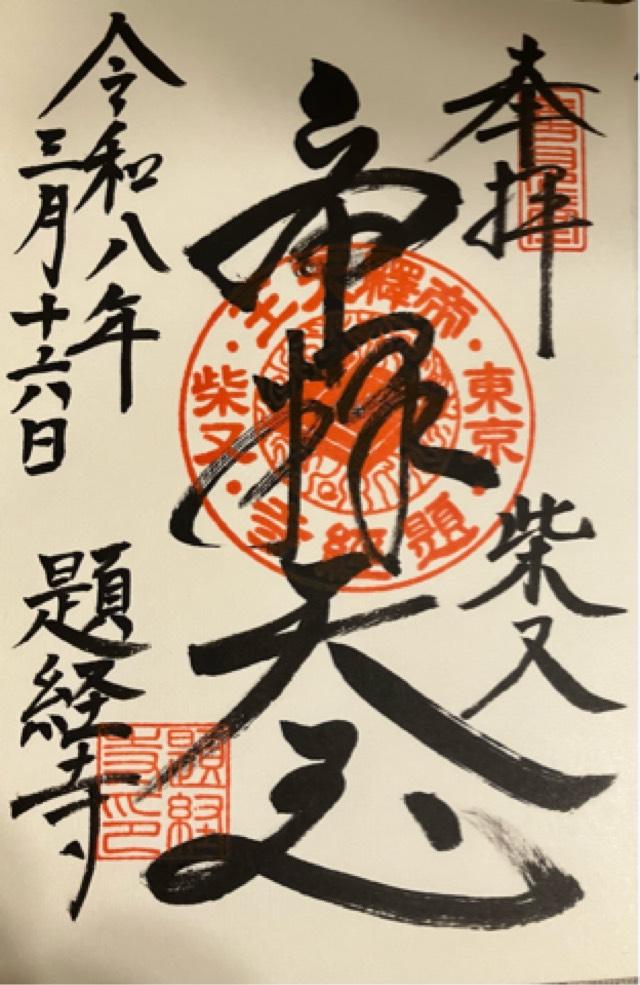 奉拝
柴又
帝釈天王
令和八年
三月十六日
題経寺
帝釋天王
東京
柴又
題經寺
題経寺印